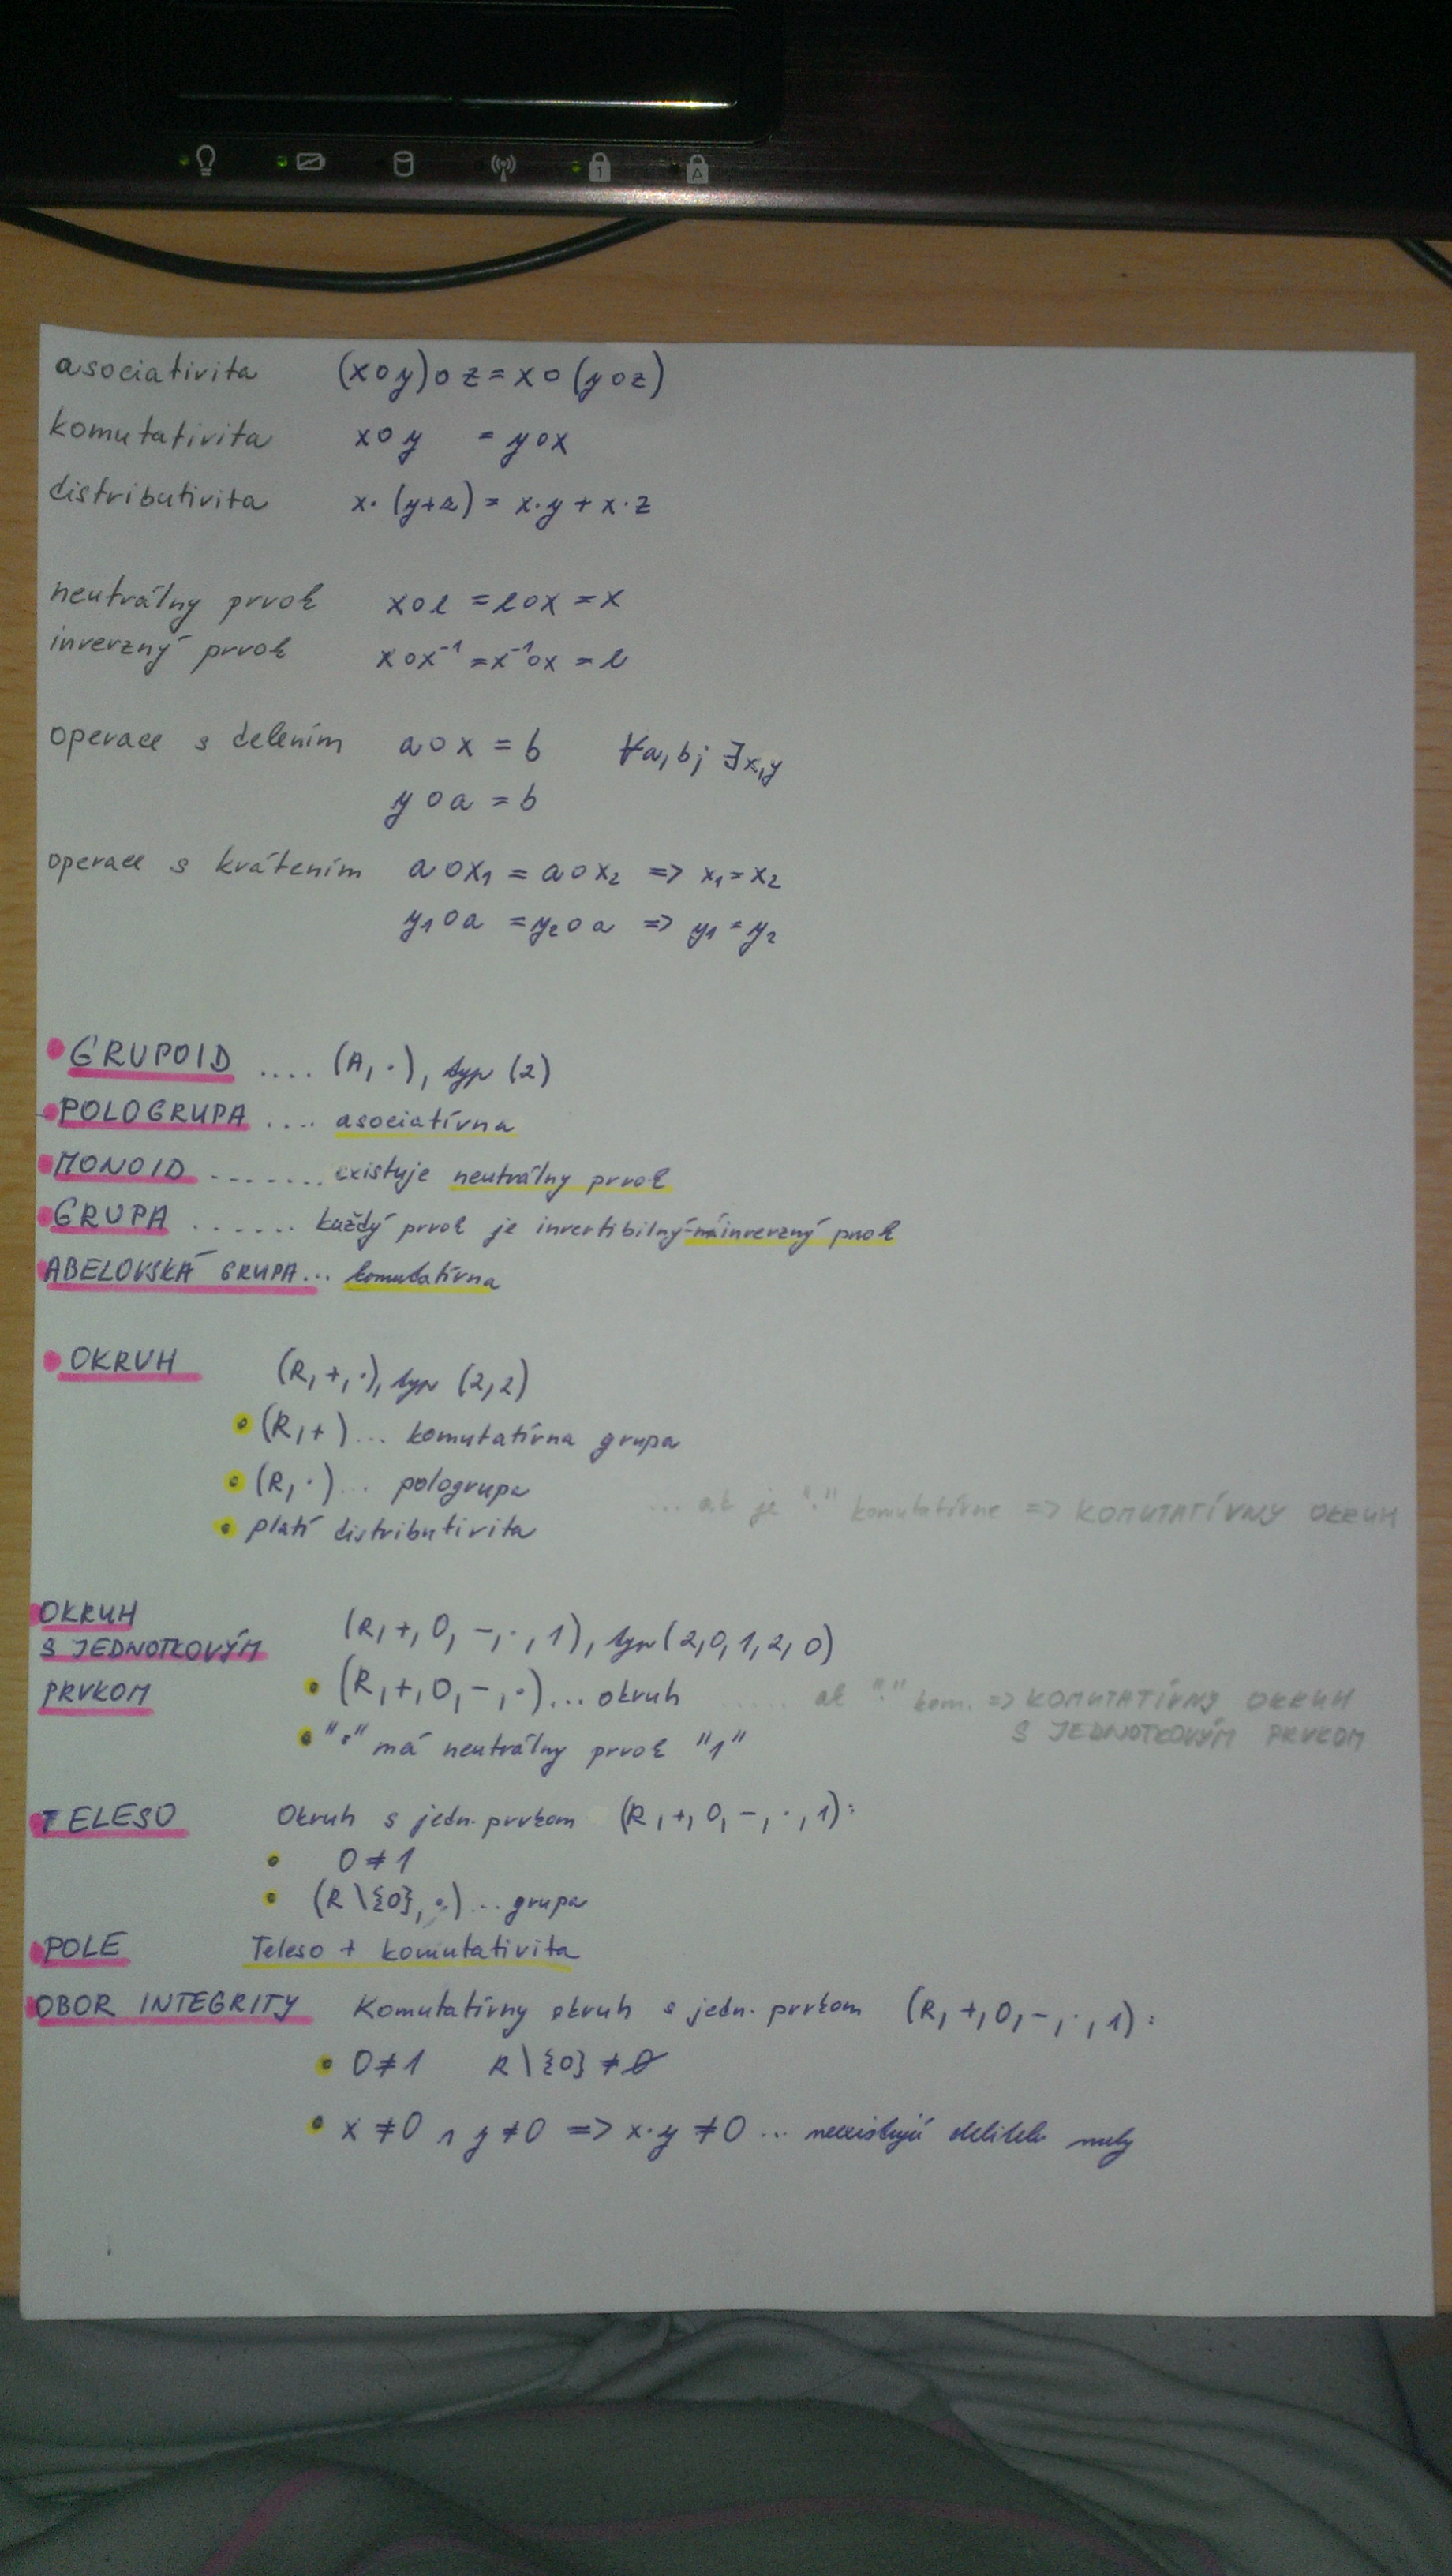 asociativita (x∘y)∘z = x∘(y∘z)
komutativita x∘y = y∘x
distributivita x·(y+z) = x·y + x·z
neutrálny prvok x∘e = e∘x = x
inverzný prvok x∘x⁻¹ = x⁻¹∘x = e
operace s delením a∘x = b ∀a,b; ∃x,y
y∘a = b
operace s krátením a∘x₁ = a∘x₂ => x₁ = x₂
y₁∘a = y₂∘a => y₁ = y₂
GRUPOID .... (A, ·), typ (2)
POLOGRUPA .... asociatívna
MONOID ....... existuje neutrálny prvok
GRUPA ...... každý prvok je invertibilný-má inverzný prvok
ABELOVSKÁ GRUPA... komutatívna
OKRUH (R, +, ·), typ (2,2)
(R, +) ... komutatívna grupa
(R, ·) ... pologrupa
... ak je "·" komutatívne => KOMUTATÍVNY OKRUH
platí distributivita
OKRUH
S JEDNOTKOVÝM
PRVKOM
(R, +, 0, −, ·, 1), typ (2, 0, 1, 2, 0)
(R, +, 0, −, ·) ... okruh ..... ak "·" kom. => KOMUTATÍVNY OKRUH
S JEDNOTKOVÝM PRVKOM
"·" má neutrálny prvok "1"
TELESO Okruh s jedn. prvkom (R, +, 0, −, ·, 1):
0 ≠ 1
(R \ {0}, ·) ... grupa
POLE Teleso + komutativita
OBOR INTEGRITY Komutatívny okruh s jedn. prvkom (R, +, 0, −, ·, 1):
0 ≠ 1 R \ {0} ≠ ∅
x ≠ 0 ∧ y ≠ 0 => x·y ≠ 0 ... neexistujú delitele nuly